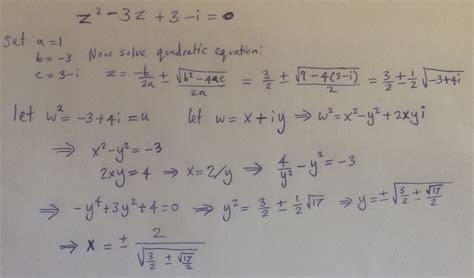 z² - 3z + 3 - i = 0
Set a = 1
b = -3 Now solve quadratic equation:
c = 3 - i z = -b/2a ± √(b² - 4ac)/2a = 3/2 ± √(9 - 4(3 - i))/2 = 3/2 ± 1/2 √(-3 + 4i)
let w² = -3 + 4i = u let w = x + iy ⇒ w² = x² - y² + 2xyi
⇒ x² - y² = -3
2xy = 4 ⇒ x = 2/y ⇒ 4/y² - y² = -3
⇒ -y⁴ + 3y² + 4 = 0 ⇒ y² = 3/2 ± 1/2 √17 ⇒ y = ± √(3/2 ± √17/2)
⇒ x = ± 2/√(3/2 ± √17/2)